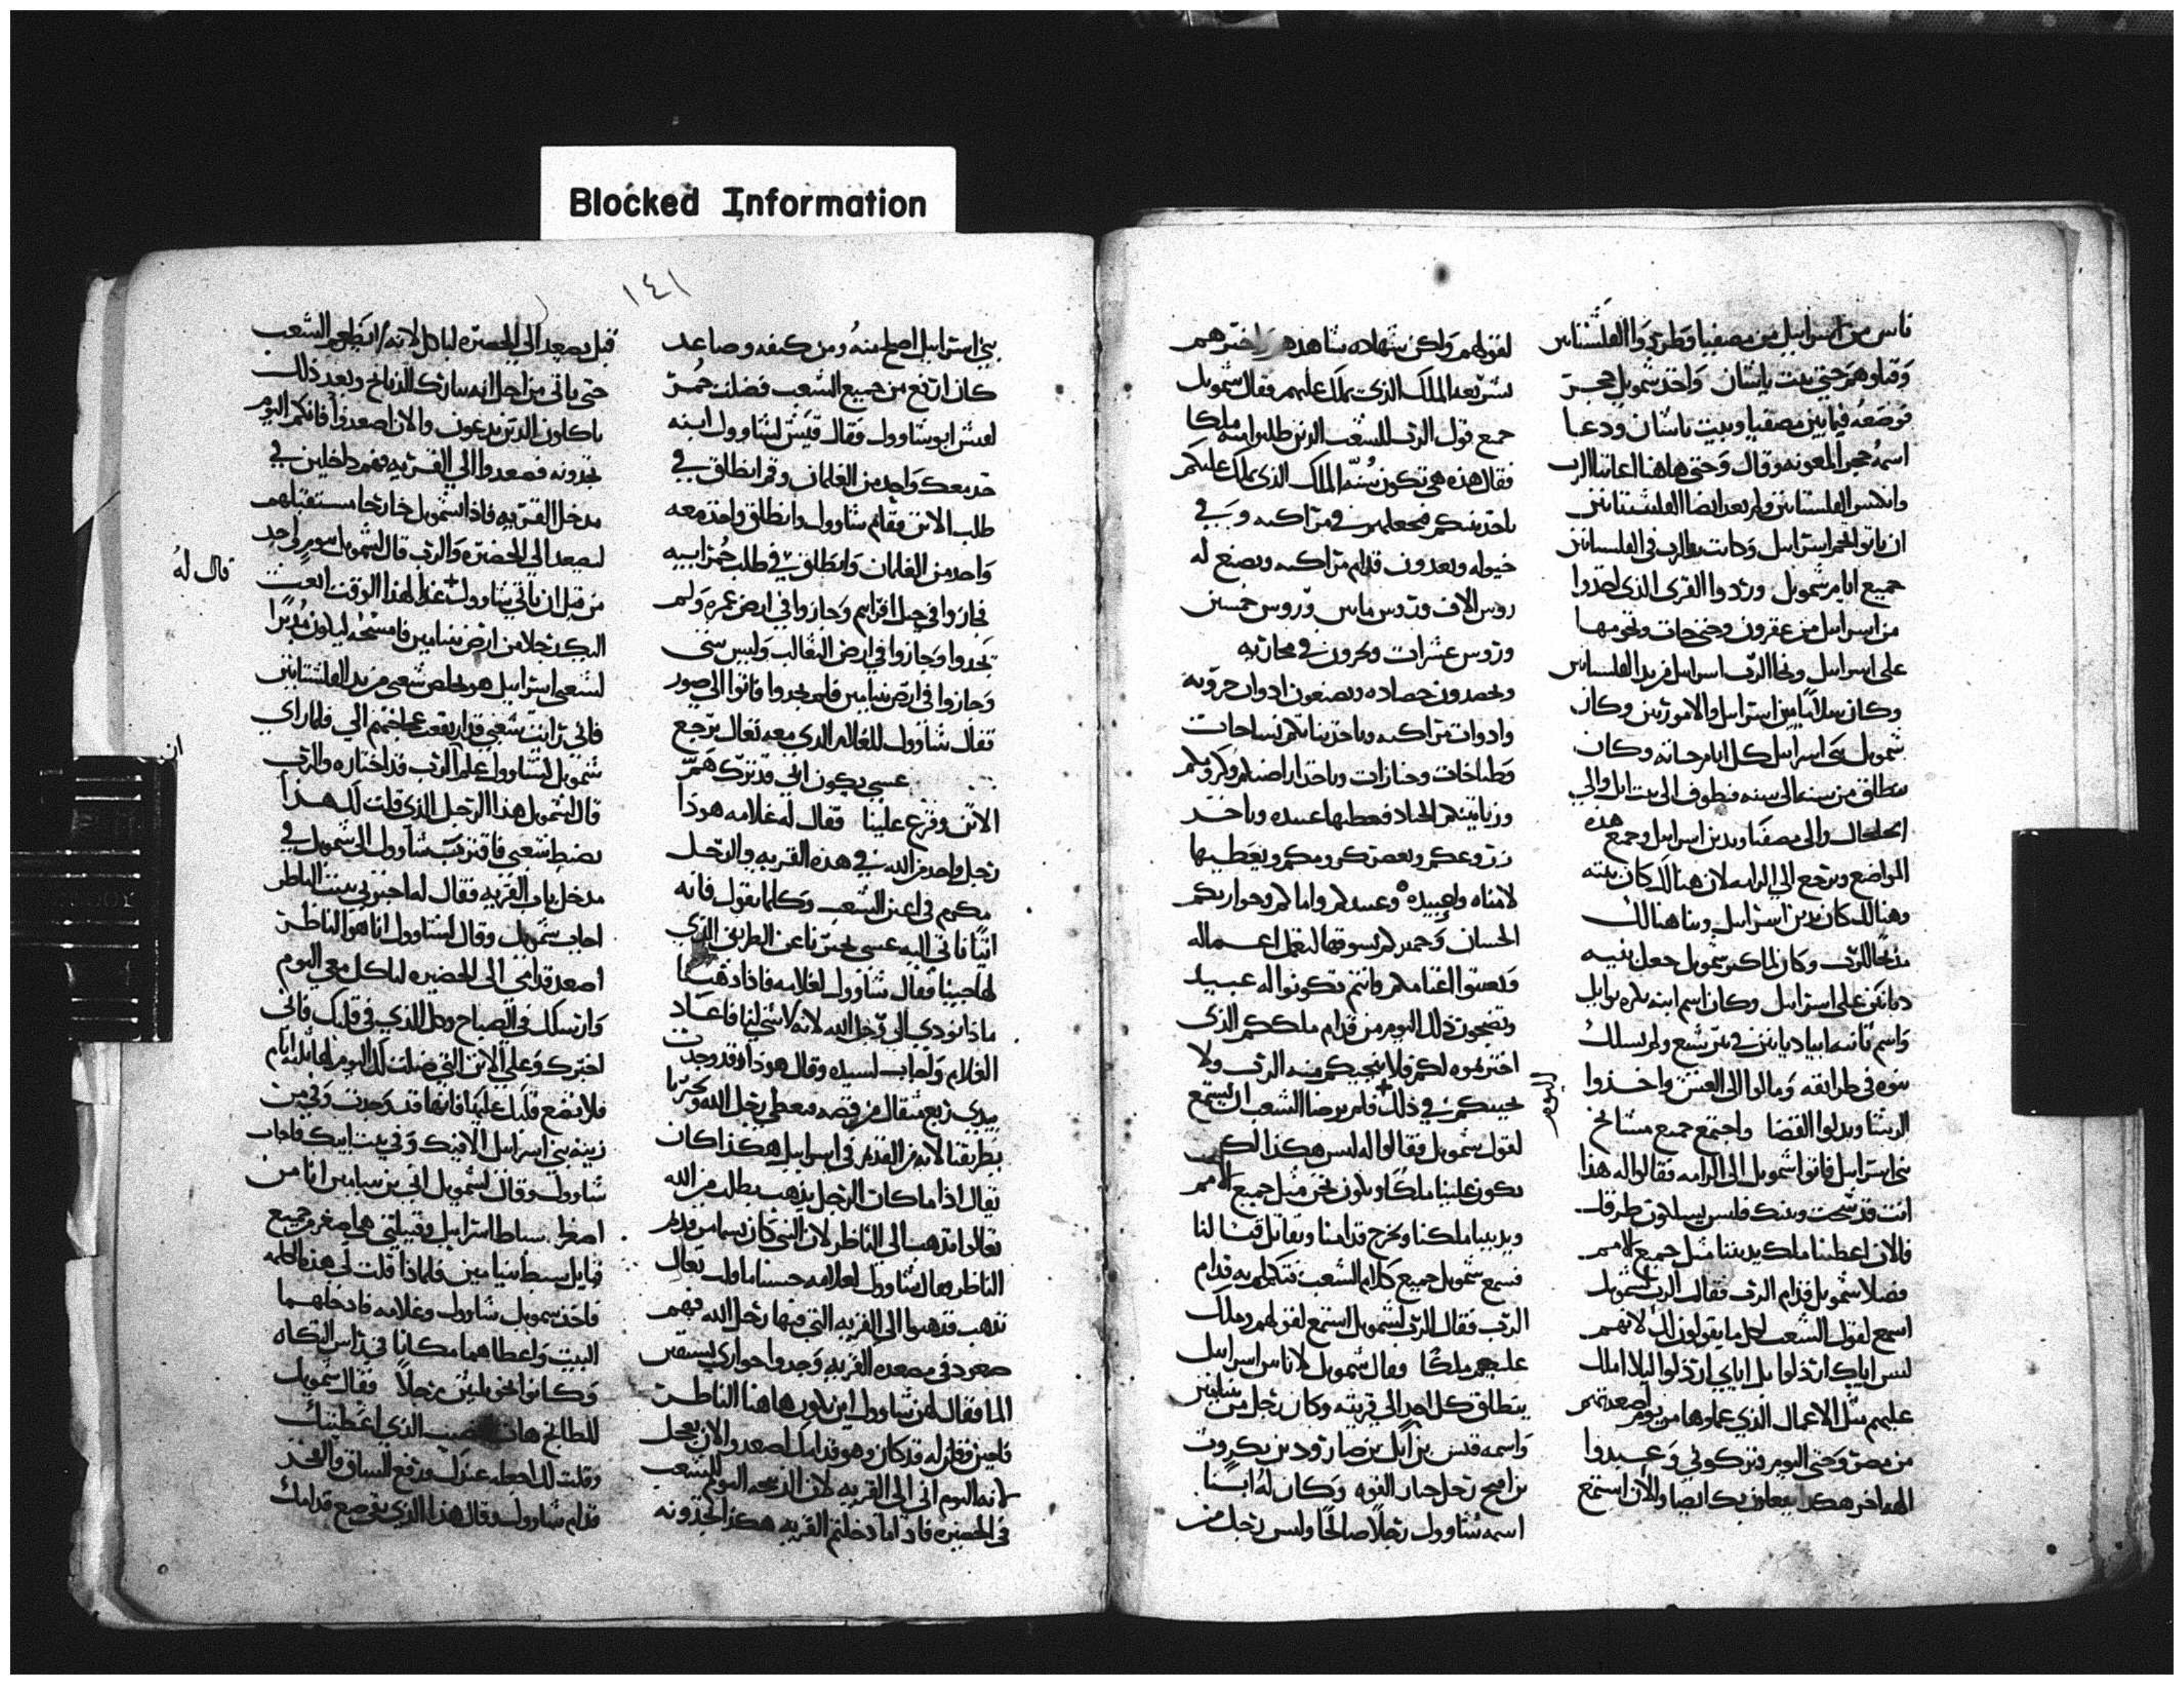 Blocked Information
ناس من اسراييل من مصفيا وطردوا الفلشتانيين
وقتلوهم حتى بيت ياشان واخذ شمويل حجر
فوضعه فيما بين مصفيا وبيت ياشان ودعا
اسمه حجر المعونه وقال وحتى هاهنا اعاننا الرب
ان ياتوا تخم اسراييل وكانت يد الرب في الفلسطانين
جميع ايام شمويل وردوا القرى الذي اخذوا
من اسراييل من عقرون وحتى جات وتخومها
وكان سلاما بين اسراييل والاموريين وكان
شمويل بنى اسراييل كل ايام حياته وكان
ينطلق من سنه الى سنه فيطوف الى بيت ايل والى
الجلجال والى مصفيا ويدين اسراييل وجميع هذه
المواضع ويرجع الى الرامه لان هنالك كان بيته
وهنالك كان يدين اسراييل وبنا هنالك
مذبحا للرب وكان لما كبر شمويل جعل بنيه
ديانين على اسراييل وكان اسم ابنه بكره يوايل
واسم ثانيه ابيا ديانين في بير شبع ولم يسلك
بنوه في طرايقه ومالوا الى الغش واخذوا
الرشا وبدلوا القضا واجتمع جميع مشايخ
بني اسراييل فاتوا شمويل الى الرامه فقالوا له هذا
انت قد شخت وبنيك فليس يسلكون طرقك
فالان اعطينا ملك يديننا مثل جميع الامم
فصلا شمويل قدام الرب فقال الرب لشمويل
اسمع لقول الشعب لكل ما يقولون لك لانهم
ليس اياك ارذلوا بل اياي ارذلوا ليلا املك
عليهم مثل الاعمال الذي عملوها من يوم اصعدتهم
من مصر وحتى اليوم فتركوني وعبدوا
الهه اخر هكذا يفعلون بك ايضا والان استمع
لقولهم ولكن شهاده شاهدهم واخبرهم
بشريعه الملك الذي يملك عليهم فقال شمويل
جميع قول الرب للشعب الذين طلبوا منه ملكا
فقال هذه هي تكون سنة الملك الذي يملك عليكم
ياخذ بنيكم فيجعلهم في مراكبه وفي
خيوله ويعدون قدام مراكبه ويصنع له
روس الاف وروس مايين وروس خمسين
وروس عشرات ويحرثون في محارثه
ويحصدون حصاده ويصنعون ادوات حروبه
وادوات مراكبه وياخذ بناتكم نساجات
وطباخات وخبازات وياخذ اراضيكم وكرومكم
وزياتينكم الجياد فيعطيها عبيده وياخذ
زروعكم وبعض كرومكم ويعطيها
لامناه ولعبيده وعبيدكم واماكم وجواريكم
الحسان وحميركم يسوقها لتعمل اعماله
وتعشوا اغنامكم وانتم تكونوا له عبيد
وتضجون ذلك اليوم من قدام ملككم الذي
اخترتموه لكم فلا ينجيكم منه الرب ولا
يجيبكم في ذلك فلم يرضا الشعب ان يستمع
اليوم
لقول شمويل فقالوا له ليس هكذا لكن
يكون علينا ملكا ونكون نحن مثل جميع الامم
ويديننا ملكنا ويخرج قدامنا ويقاتل قتالنا
فسمع شمويل جميع كلام الشعب فتكلم به قدام
الرب فقال الرب لشمويل استمع لقولهم وملك
عليهم ملكا وقال شمويل لاناس اسراييل
ينطلق كل احد الى قريته وكان رجل من بنيامين
واسمه قيس بن ابيل بن صارود بن بكروت
بن افيح رجل جبار القوه وكان له ابنا
اسمه شاوول رجلا صالحا وليس رجل من
١٤١
بني اسراييل اصلح منه ومن كتفه وصاعد
كان ارتفع من جميع الشعب فضلت حمر
لقيش ابو شاوول فقال قيش لشاوول ابنه
خذ معك واحد من الغلمان وقم انطلق في
طلب الاتن فقام شاوول وانطلق واخذ معه
واحد من الغلمان وانطلق في طلب حمر ابيه
فجازوا في جبل افرايم وجازوا في ارض ولم
يجدوا وجازوا في ارض الثعالب وليس شي
وجازوا في ارض بنيامين فلم يجدوا فاتوا الى صور
فقال شاوول للغلام الذي معه تعال نرجع
عسى يكون ابي قد ترك هم
الاتن وفزع علينا فقال له غلامه هوذا
رجل واحد من الله في هذه القريه والرجل
مكرم في اعين الشعب وكلما يقول فانه
اتيا ناتي اليه عسى يخبرنا عن الطريق الذي
لها جينا فقال شاوول لغلامه فاذا ذهبنا
ماذا نودي الى رجل الله لانه لا شي لنا فاعاد
الغلام واجاب لسيده وقال هوذا وقد وجدت
بيدي ربع مثقال من فضه فنعطي رجل الله ويخبرنا
بطريقنا لانه من القديم في اسراييل هكذا كان
يقال اذا ما كان الرجل يذهب يطلب من الله
تعالوا نذهب الى الناظر لان النبي كان يسما من قديم
الناظر فقال شاوول لغلامه حسنا ما قلت تعال
نذهب فذهبوا الى القريه التي فيها رجل الله فهم
صعود في مصعده القريه وجدوا جواري يستقين
الما فقال لهن شاوول اين يكون هاهنا الناظر
فاجبن وقلن له قد كان وهو قدامك اصعد والان بعجل
لانه اليوم اتى الى القريه لان الذبيحه اليوم للشعب
في الحضيره فاذا ما دخلتم القريه هكذا تجدونه
قبل يصعد الى الحضيره لياكل لانه ينظر الشعب
حتى ياتي من اجل انه يبارك الذبايح وبعد ذلك
ياكلون الذين يدعون والان اصعدوا فانكم اليوم
تجدونه فصعدوا الى القريه فهم داخلين في
مدخل القريه فاذا شمويل خارجا مستقبلهم
ليصعد الى الحضيره والرب قال لشمويل يوم واحد
من قبل ان ياتي شاوول غدا لهذا الوقت ابعث
قال له
اليك رجلا من ارض بنيامين فامسحه ليكون مدبرا
لشعبي اسراييل هو يخلص شعبي من يد الفلشتانيين
فاني رايت شعبي قد ارتفعت ضجتهم الي فلما راى
شمويل لشاوول علم الرب قد اختاره والرب
ان
قال لشمويل هذا الرجل الذي قلت لك هذا
يضبط شعبي فاقترب شاوول الى شمويل في
مدخل باب القريه فقال له اخبرني بيت الناظر
اجاب شمويل وقال لشاوول انا هو الناظر
اصعد قدامي الى الحضيره لتاكل معي اليوم
وارسلك في الصباح وكل الذي في قلبك فاني
اخبرك وعلى الاتن التي ضلت لك اليوم لها ثلثه ايام
فلا تضع قلبك عليها فانها قد وجدت ولمن
زينه بني اسراييل الا فيك وفي بيت ابيك فاجاب
شاوول وقال لشمويل اني بن بنيامين انا من
اصغر اسباط اسراييل وقبيلتي هي اصغر من جميع
قبايل سبط بنيامين فلماذا قلت لي هذه الكلمه
فاخذ شمويل شاوول وغلامه فادخلهما
البيت واعطاهما مكانا في راس التكاه
وكانوا نحو ثلثين رجلا فقال شمويل
للطابخ هات النصيب الذي اعطيتك
وقلت لك اجعله عندك فرفع الساق والفخذ
قدام شاوول وقال هذا الذي بقي ضع قدامك